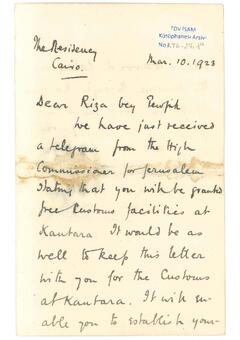 TDV İSAM
Kütüphanesi Arşivi
No RTB-
The Residency
Cairo.
Mar. 10. 1923
Dear Riza bey Tewfik
We have just received
a telegram from the High
Commissioner for Jerusalem
stating that you will be granted
free Customs facilities at
Kantara. It would be as
well to keep this letter
with you for the Customs
at Kantara. It will en-
able you to establish your-